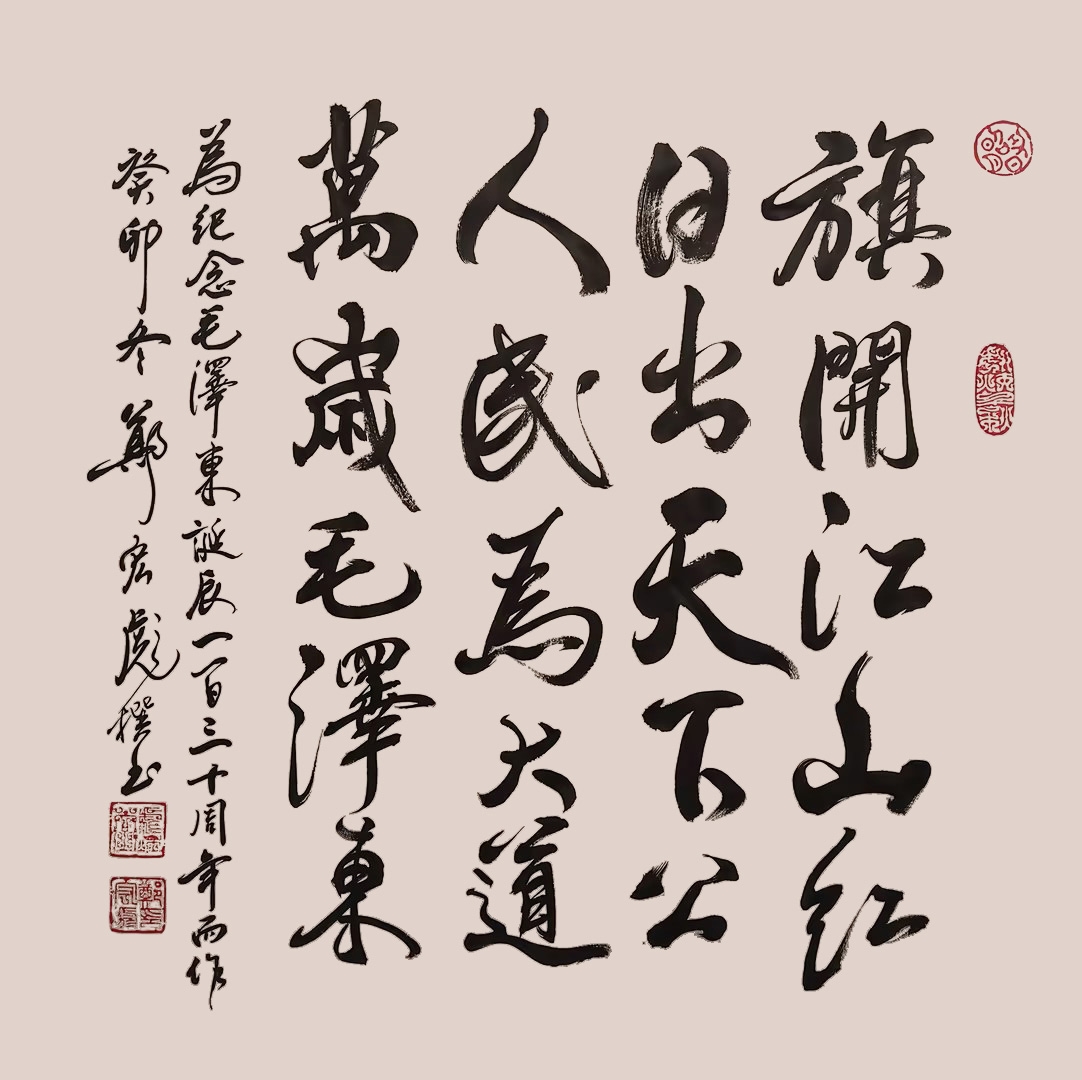 旗開江山红
日出天下公
人民為大道
萬歲毛澤東
為纪念毛澤東誕辰一百三十周年而作
癸卯冬鄭宏彪撰书